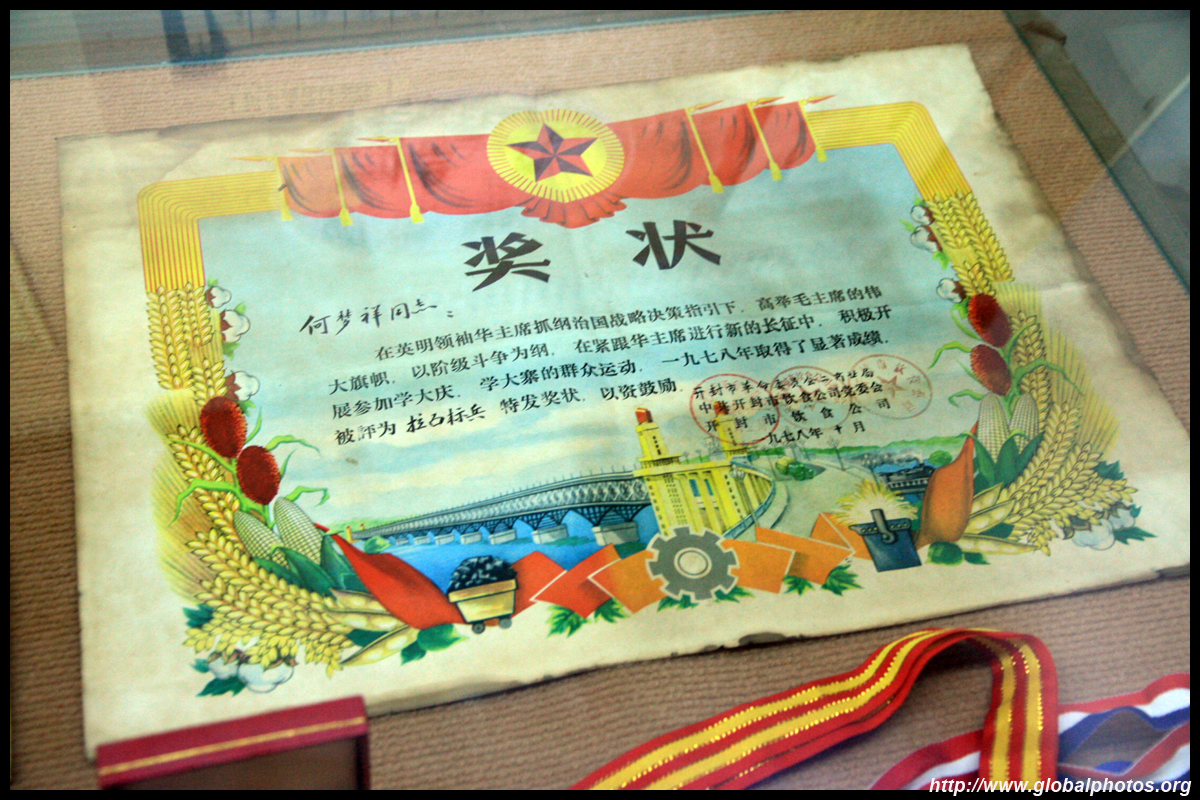 奖状
何梦祥同志：
在英明领袖华主席抓纲治国战略决策指引下，高举毛主席的伟
大旗帜，以阶级斗争为纲，在紧跟华主席进行新的长征中，积极开
展参加学大庆，学大寨的群众运动，一九七八年取得了显著成绩，
被評为 拉面标兵 特发奖状，以资鼓励。
开封市革命委员会二商业局
中共开封市饮食公司党委会
开封市饮食公司
一九七八年十月
http://www.globalphotos.org